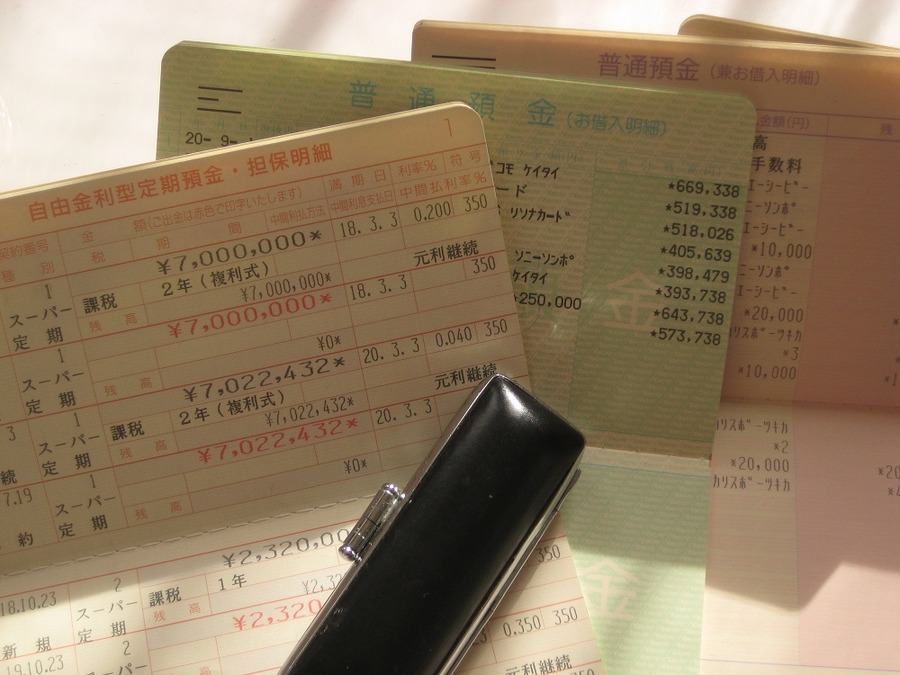 普通預金(兼お借入明細)
普通預金(お借入明細)
20- 9-
金額(円)
残
高
手数料
コモ ケイタイ
*669,338
エーシービー
ード
*519,338
ニーソンポ
リソナカード
*518,026
エーシービー
*405,639
*10,000
ソニーソンポ
*398,479
ニーソンポ
ケイタイ
*393,738
エーシービー
*250,000
*643,738
*20,000
*573,738
カリスポーツキカ
*3
*10,000
リスポーツキカ
*2
*20,000
カリスポーツキカ
金
金
1
自由金利型定期預金・担保明細
契約番号 金 額(ご出金は赤色で印字いたします) 満期日 利率% 符号
種別 税 期間 中間利払方法 中間利息支払日 中間払利率%
¥7,000,000* 18. 3. 3 0.200 350
1
スーパー 課税 2年(複利式) 元利継続
定期 残高 ¥7,000,000* 18. 3. 3 350
¥7,000,000*
1
スーパー ¥0*
定期 残高
¥7,022,432* 20. 3. 3 0.040 350
1
3 スーパー 課税 2年(複利式) 元利継続
定期 残高 ¥7,022,432* 20. 3. 3
¥7,022,432*
続
7.19 1
スーパー ¥0*
約 定期 残高
¥2,320,00
18.10.23 2
スーパー 課税 1年 ¥2,32
新規 定期 残高 ¥2,320 350
19.10.23 2
スーパー 0.350 350
元利継続